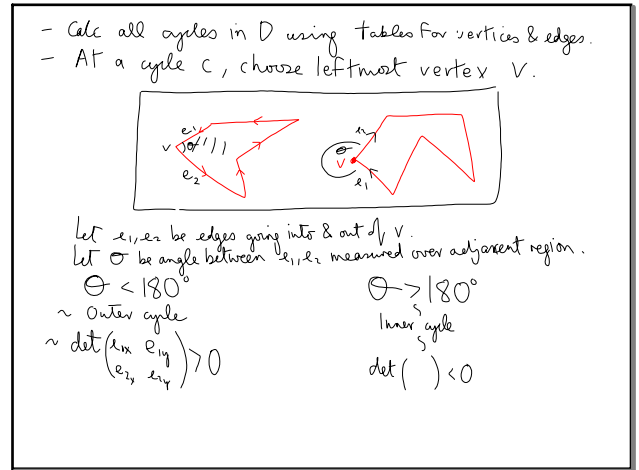 - Calc all cycles in D using tables for vertices & edges.
- At a cycle C, choose leftmost vertex V.
e1
v θ
e2
e2
θ
v
e1
Let e1, e2 be edges going into & out of v.
Let θ be angle between e1, e2 measured over adjacent region.
θ < 180°
θ > 180°
~ Outer cycle
Inner cycle
~ det(e1x e1y
e2x e2y) > 0
det( ) < 0